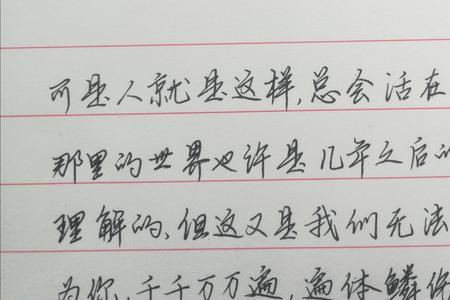 可是人就是这样,总会活在
那里的世界也许是几年之后的
理解的,但这又是我们无法
为你,千千万万遍,遍体鳞伤